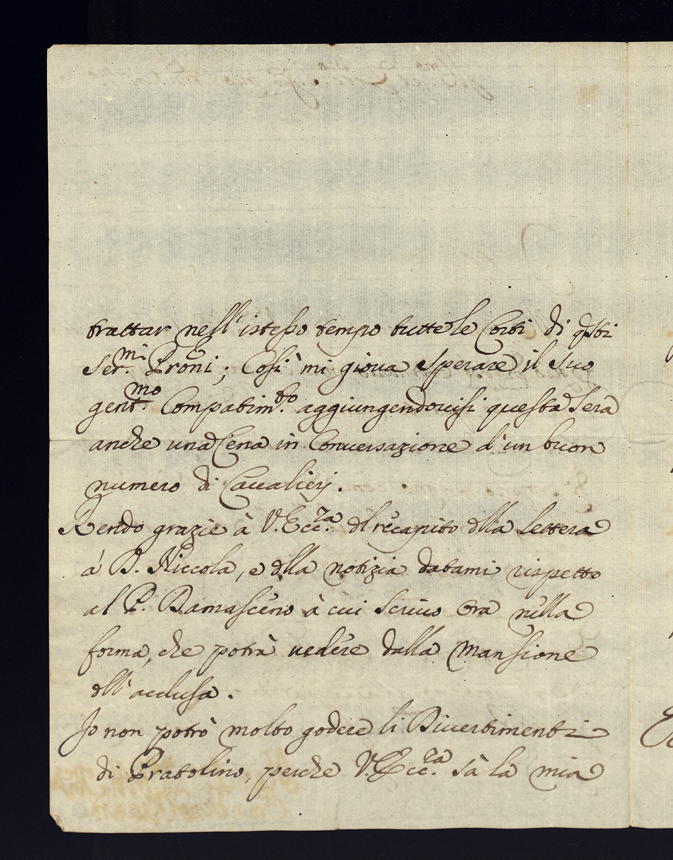 trattar nell'istesso tempo tutte le Corti di qsti
Ser.mi Proni; Così mi gioua sperare il suo
gent.mo Compatim.to aggiungendouisi questa Sera
anche una Cena in Conuersazione d'un buon
numero di Caualierj.
Rendo grazie à V. Ecc.za dl recapito dlla lettera
à D. Niccola, e dlla notizia datami rispetto
al P. Damasceno à cui scriuo ora nella
forma, che potrà uedere dalla mansione
dll'acclusa.
Jo non potrò molto godere li Diuertimenti
di Pratolino, perche V. Ecc.za sà la mia